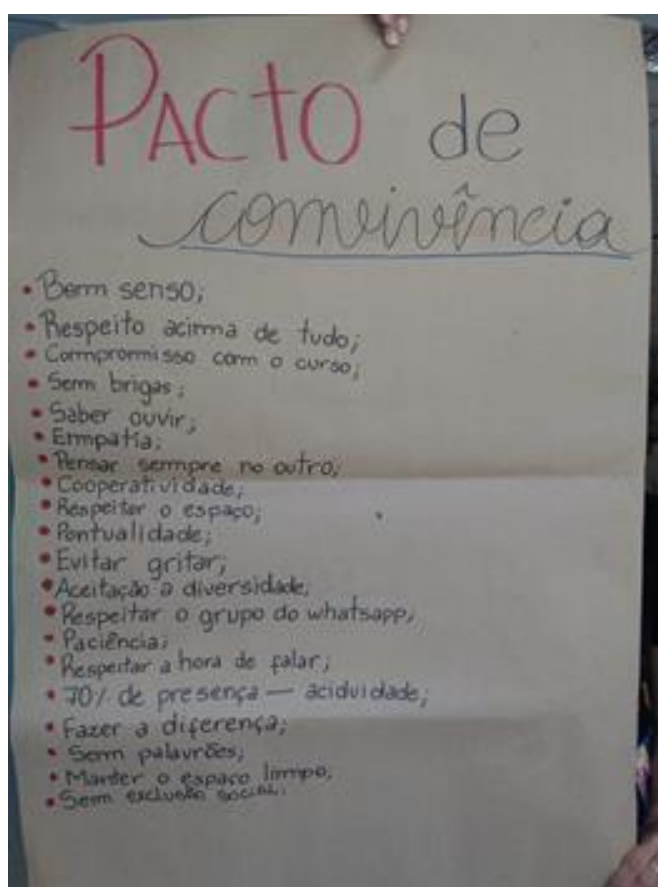 PACTO de
convivência
• Bom senso;
• Respeito acima de tudo;
• Compromisso com o curso;
• Sem brigas;
• Saber ouvir;
• Empatia;
• Pensar sempre no outro;
• Cooperatividade;
• Respeitar o espaço;
• Pontualidade;
• Evitar gritar;
• Aceitação a diversidade;
• Respeitar o grupo do whatsapp;
• Paciência;
• Respeitar a hora de falar;
• 70% de presença — aciduidade;
• Fazer a diferença;
• Sem palavrões;
• Manter o espaço limpo;
• Sem exclusão social;